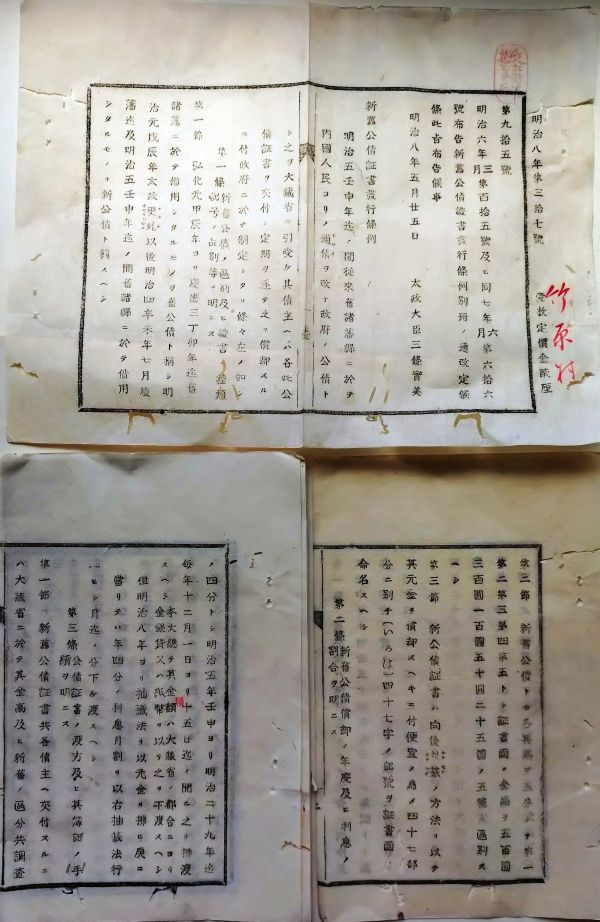 明治八年第三拾七號
竹原村
第九拾五號
明治六年三月第百拾五號及ヒ同七年六月第六拾六
號布告新舊公債證書發行條例別冊ノ通改定候
條此旨布告候事
明治八年五月廿五日
太政大臣三條實美
新舊公債証書發行條例
明治五壬申年迄ノ間從來舊諸藩縣ニ於テ
內國人民ヨリノ逋債ヲ改テ政府ノ公債ト
シ之ヲ大藏省ニ引受ケ其債主ヘハ各此公
債証書ヲ交付シ定期ヲ逐テ之ヲ償却スル
ニ付政府ニ於テ制定シタル條々左ノ如シ
第一條 新舊公債ノ區別及ヒ證書ノ種類
記号ノ品別等ヲ明ニス
第一節 弘化元甲辰年ヨリ慶應三丁卯年迄舊
諸藩ニ於テ借用シタルモノヲ舊公債ト稱シ明
治元戊辰年太政更始以後明治四辛未年七月廢
藩迄及明治五壬申年迄ノ間舊諸縣ニ於テ借用
シタルモノヲ新公債ト稱スヘシ
第二節 新舊公債トモ各其
第二第三第四第五トシ證書面ノ金高ヲ五百圓
三百圓一百圓五十圓二十五圓ノ五種ニ區別ス
ヘシ
第三節 新公債証書ハ向後抽籤ノ方法ヲ以テ
其元金ヲ償却スヘキニ付便宜ノ爲メ四十七部
分ニ別チ(いろは)四十七字ノ記號ヲ證書面ニ
命名スヘシ
第二條 新舊公債償却ノ年度及ヒ利息ノ
割合ヲ明ニス
ノ四分トシ明治五年壬申ヨリ明治二十九年迄
每年十二月一日ヨリ十五日迄ノ間ニ之ヲ拂渡
スヘシ
本大藏省ノ都合ニヨリ
金銀貨又ハ紙幣ヲ以テ之ヲ下渡スヘシ
但明治八年ヨリ抽籤法ヲ以テ元金ヲ拂ヒ戾ニ
當リテハ年四分ノ利息月割ヲ以右抽籤法行
ヒシ月迄ノ分下ケ渡スヘシ
第三條 公債証書ノ渡方及ヒ其簿記ノ手
續ヲ明ニス
第一節 新舊公債証書共各債主ヘ交付スルニ
ハ大藏省ニ於テ其金高及ヒ新舊ノ區分共調査